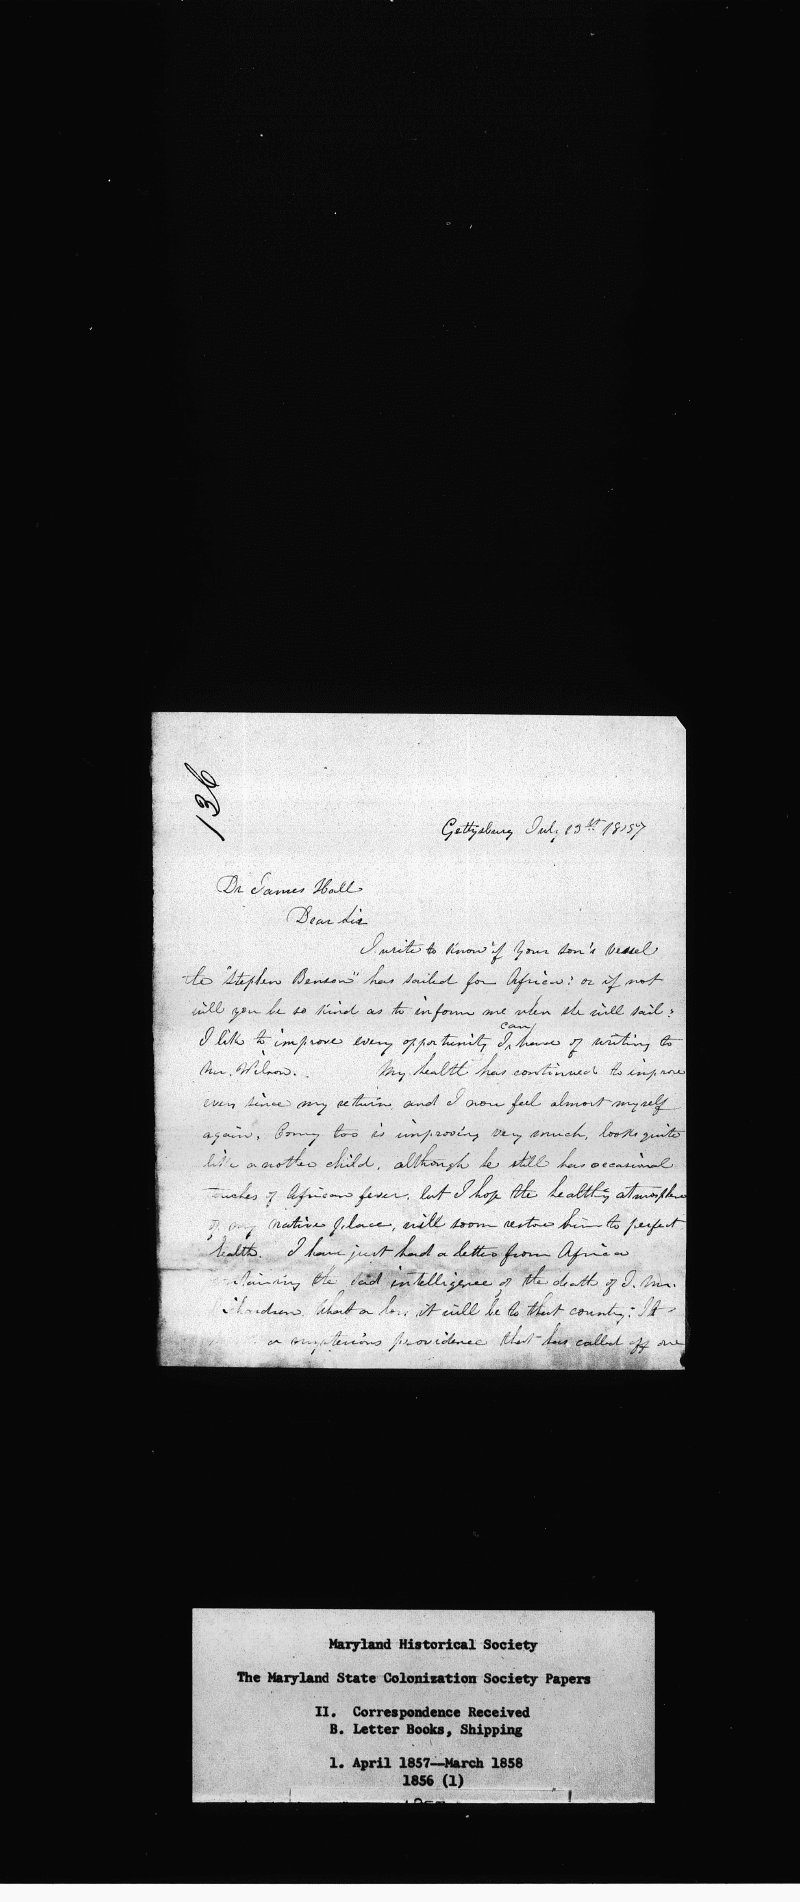 136
Gettysburg July 13st 1857
Dr James Hall
Dear Sir
I write to know if your son's vessel
the "Stephen Benson" has sailed for Africa: or if not
will you be so kind as to inform me when she will sail:
I like to improve every opportunity I can have of writing to
Mr. Wilson. My health has continued to improve
ever since my return and I now feel almost myself
again, too is improving very much, looks quite
like another child, although he still has occasional
touches of African fever, but I hope the healthy atmosphere
of my native place, will soon restore him to perfect
health. I have just had a letter from Africa
the sad intelligence of the death of J. M.
What a loss it will be to that country: It
a mysterious providence that has called off one
Maryland Historical Society
The Maryland State Colonization Society Papers
II. Correspondence Received
B. Letter Books, Shipping
1. April 1857--March 1858
1856 (1)